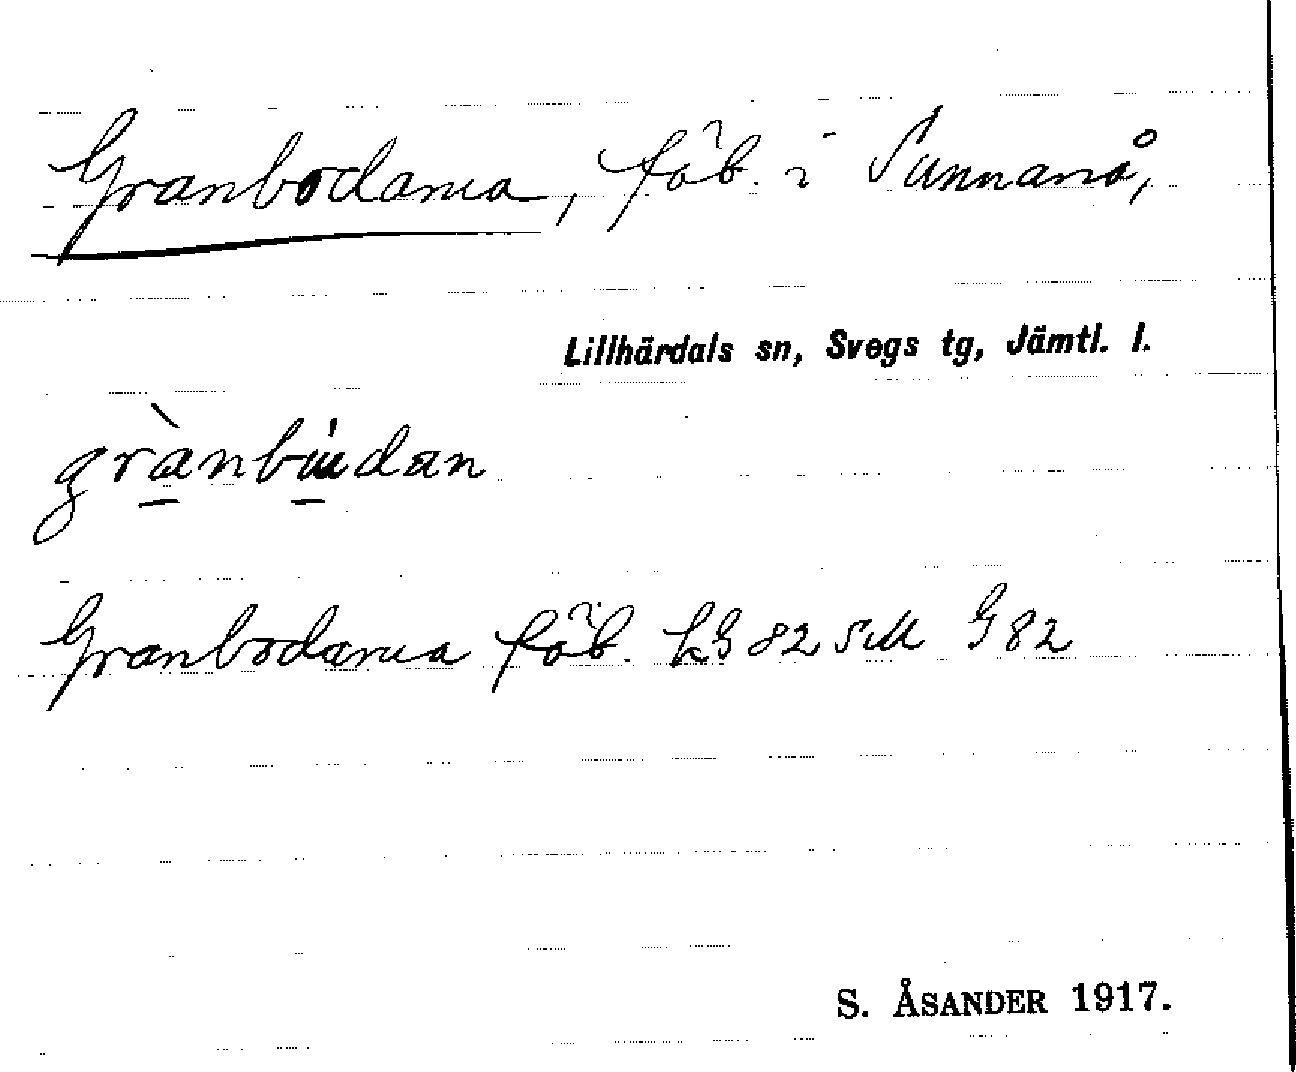 Granbodarna, fäb. i Sunnanå,
Lillhärdals sn, Svegs tg, Jämtl. l.
grànbùdan
Granbodarna fäb. LG 82 SM G 82
S. ÅSANDER 1917.